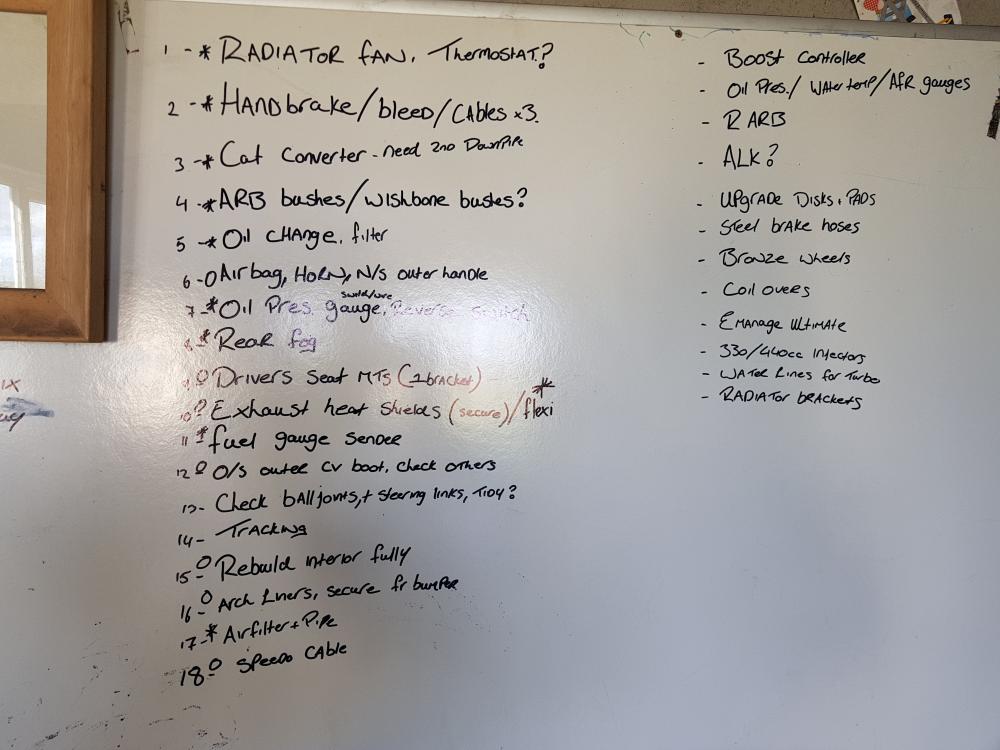 1 - * RADIATOR FAN. Thermostat?
2 - * HANDbrake/bleed/CAbles x3.
3 - * Cat Converter - need 2nd DownPipe
4 - * ARB bushes/wishbone bushes?
5 - * Oil CHANge. filter
6 - O Airbag, HoRN, N/S outer handle
7 - * Oil Pres. gauge, Reverse switch
switch/wire
8 - * Rear fog
9 - O Drivers Seat MTS (1 bracket)
10 ? Exhaust heat shields (secure)/flexi *
11 - * fuel gauge sender
12 O O/S outer CV boot, check others
13 - Check ball joints, + steering links, Tidy?
14 - Tracking
15 - O Rebuild interior fully
16 - O Arch Liners, secure fr bumper
17 - * Airfilter + Pipe
18 - O Speedo CAble
- Boost Controller
- Oil Pres./ WAter temp/AFR gauges
- R ARB
- ALK?
- UPgrade Disks + PADS
- Steel brake hoses
- Bronze wheels
- Coil overs
- Emanage Ultimate
- 330/440cc Injectors
- WATER Lines for Turbo
- RADIATOR brackets
IX